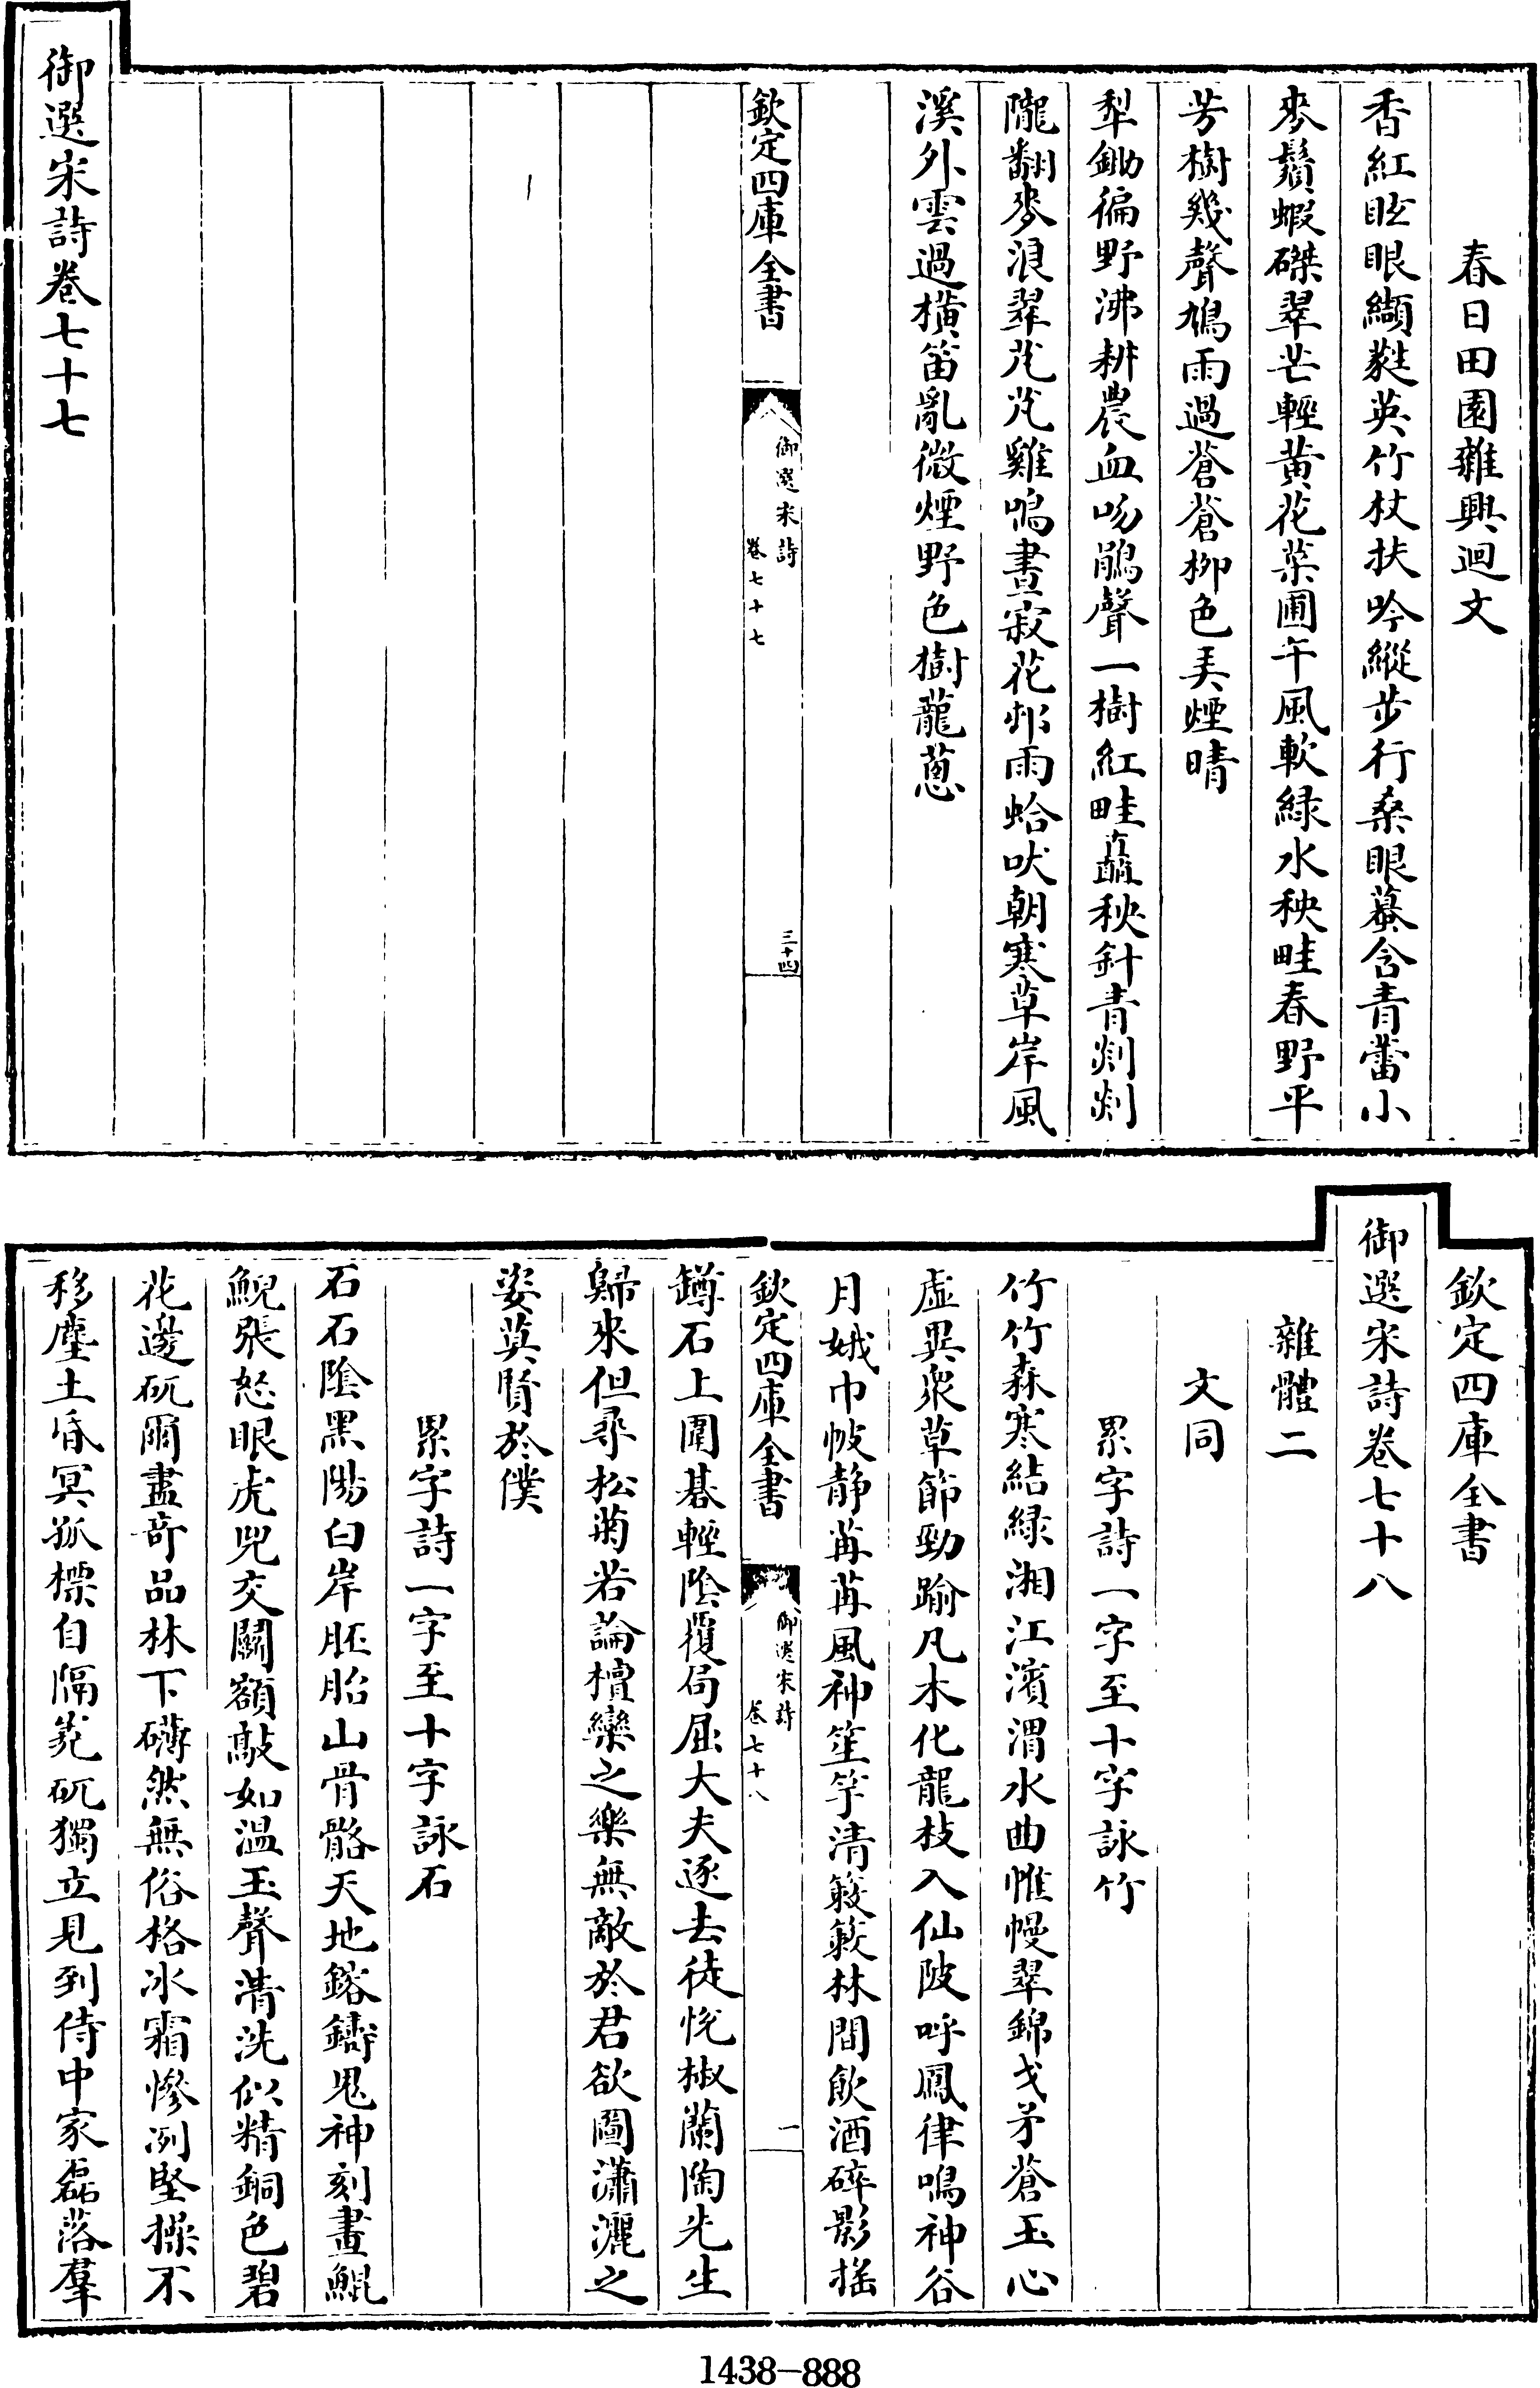 春日田園雜興迴文
香紅眩眼纈蕤英竹杖扶吟縱步行桑眼蠶含青蕾小
麥鬚蝦磔翠芒輕黄花菜圃午風軟緑水秧畦春野平
芳樹幾聲鳩雨過蒼蒼柳色美煙晴
犁鋤徧野沸耕農血吻鵑聲一樹紅畦矗秧針青剡剡
隴翻麥浪翠芃芃雞鳴晝寂花邨雨蛤吠朝寒草岸風
溪外雲過橫笛亂微煙野色樹蘢蔥
欽定四庫全書
御選宋詩
卷七十七
三十四
御選宋詩卷七十七
欽定四庫全書
御選宋詩卷七十八
雜體二
文同
累字詩一字至十字詠竹
竹竹森寒結緑湘江濱渭水曲帷幔翠錦戈矛蒼玉心
虚異衆草節勁踰凡木化龍枝入仙陂呼鳳律鳴神谷
月娥巾帔静苒苒風神笙竽清簌簌林間飲酒碎影搖
罇石上圍碁輕陰覆局屈大夫逐去徒悦椒蘭陶先生
歸來但尋松菊若論檀欒之樂無敵於君欲圖瀟灑之
姿莫賢於僕
欽定四庫全書
御選宋詩
卷七十八
一
累字詩一字至十字詠石
石石陰黑陽白岸胚胎山骨骼天地鎔鑄鬼神刻畫鯤
鯢張怒眼虎兕交鬭額敲如温玉聲清洗似精銅色碧
花邊矹爾盡奇品林下礴然無俗格冰霜慘冽堅操不
移塵土昏冥孤標自隔巍矹獨立見到侍中家磊落羣
1438—888